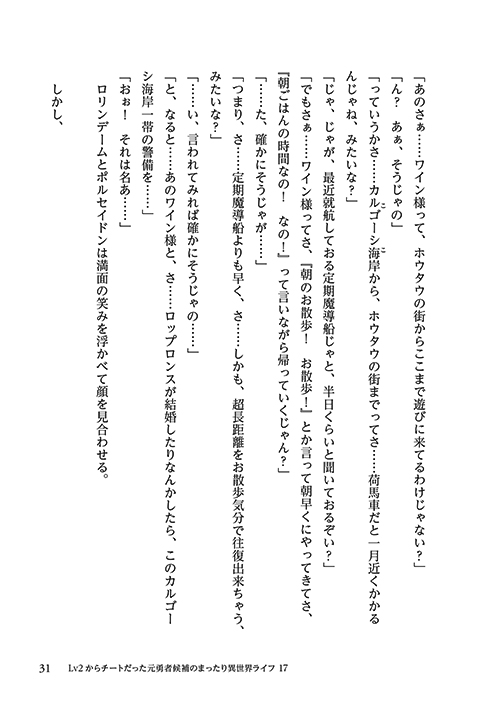 「あのさぁ……ワイン様って、ホウタウの街からここまで遊びに来てるわけじゃない?」
「ん? あぁ、そうじゃの」
「っていうかさ……カルゴーシ海岸から、ホウタウの街までってさ……荷馬車だと一月近くかかる
んじゃね、みたいな?」
「じゃ、じゃが、最近就航しておる定期魔導船じゃと、半日くらいと聞いておるぞい?」
「でもさぁ……ワイン様ってさ、『朝のお散歩! お散歩!』とか言って朝早くにやってきてさ、
『朝ごはんの時間なの! なの!』って言いながら帰っていくじゃん?」
「……た、確かにそうじゃが……」
「つまり、さ……定期魔導船よりも早く、さ……しかも、超長距離をお散歩気分で往復出来ちゃう、
みたいな?」
「……い、言われてみれば確かにそうじゃの……」
「と、なると……あのワイン様と、さ……ロップロンスが結婚したりなんかしたら、このカルゴー
シ海岸一帯の警備を……」
「おぉ! それは名あ……」
ロリンデームとポルセイドンは満面の笑みを浮かべて顔を見合わせる。
しかし、
31 Lv2からチートだった元勇者候補のまったり異世界ライフ 17